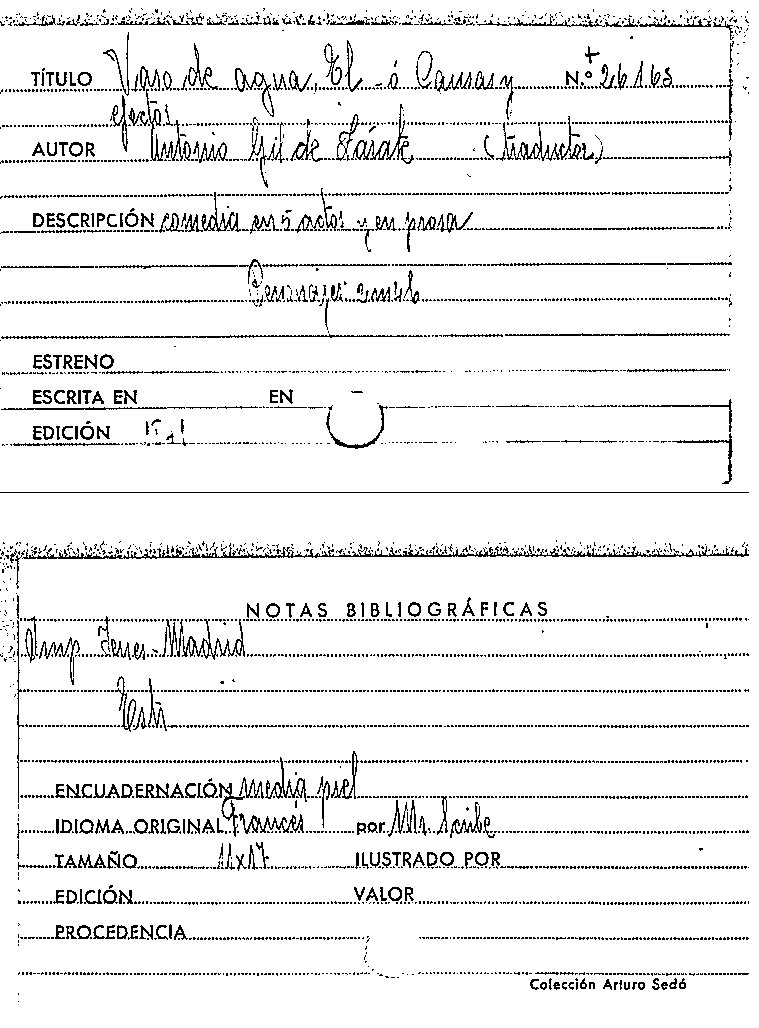 TÍTULO Vaso de agua, El - ó Causas y N.º + 26165
efectos
AUTOR Antonio Gil de Zárate (traductor)
DESCRIPCIÓN comedia en 5 actos y en prosa
Personajes
ESTRENO
ESCRITA EN EN
EDICIÓN
NOTAS BIBLIOGRÁFICAS
Imp Madrid
ENCUADERNACIÓN media piel
IDIOMA ORIGINAL Francés por Mr. Scribe
TAMAÑO 11x17 ILUSTRADO POR
EDICIÓN VALOR
PROCEDENCIA
Colección Arturo Sedó